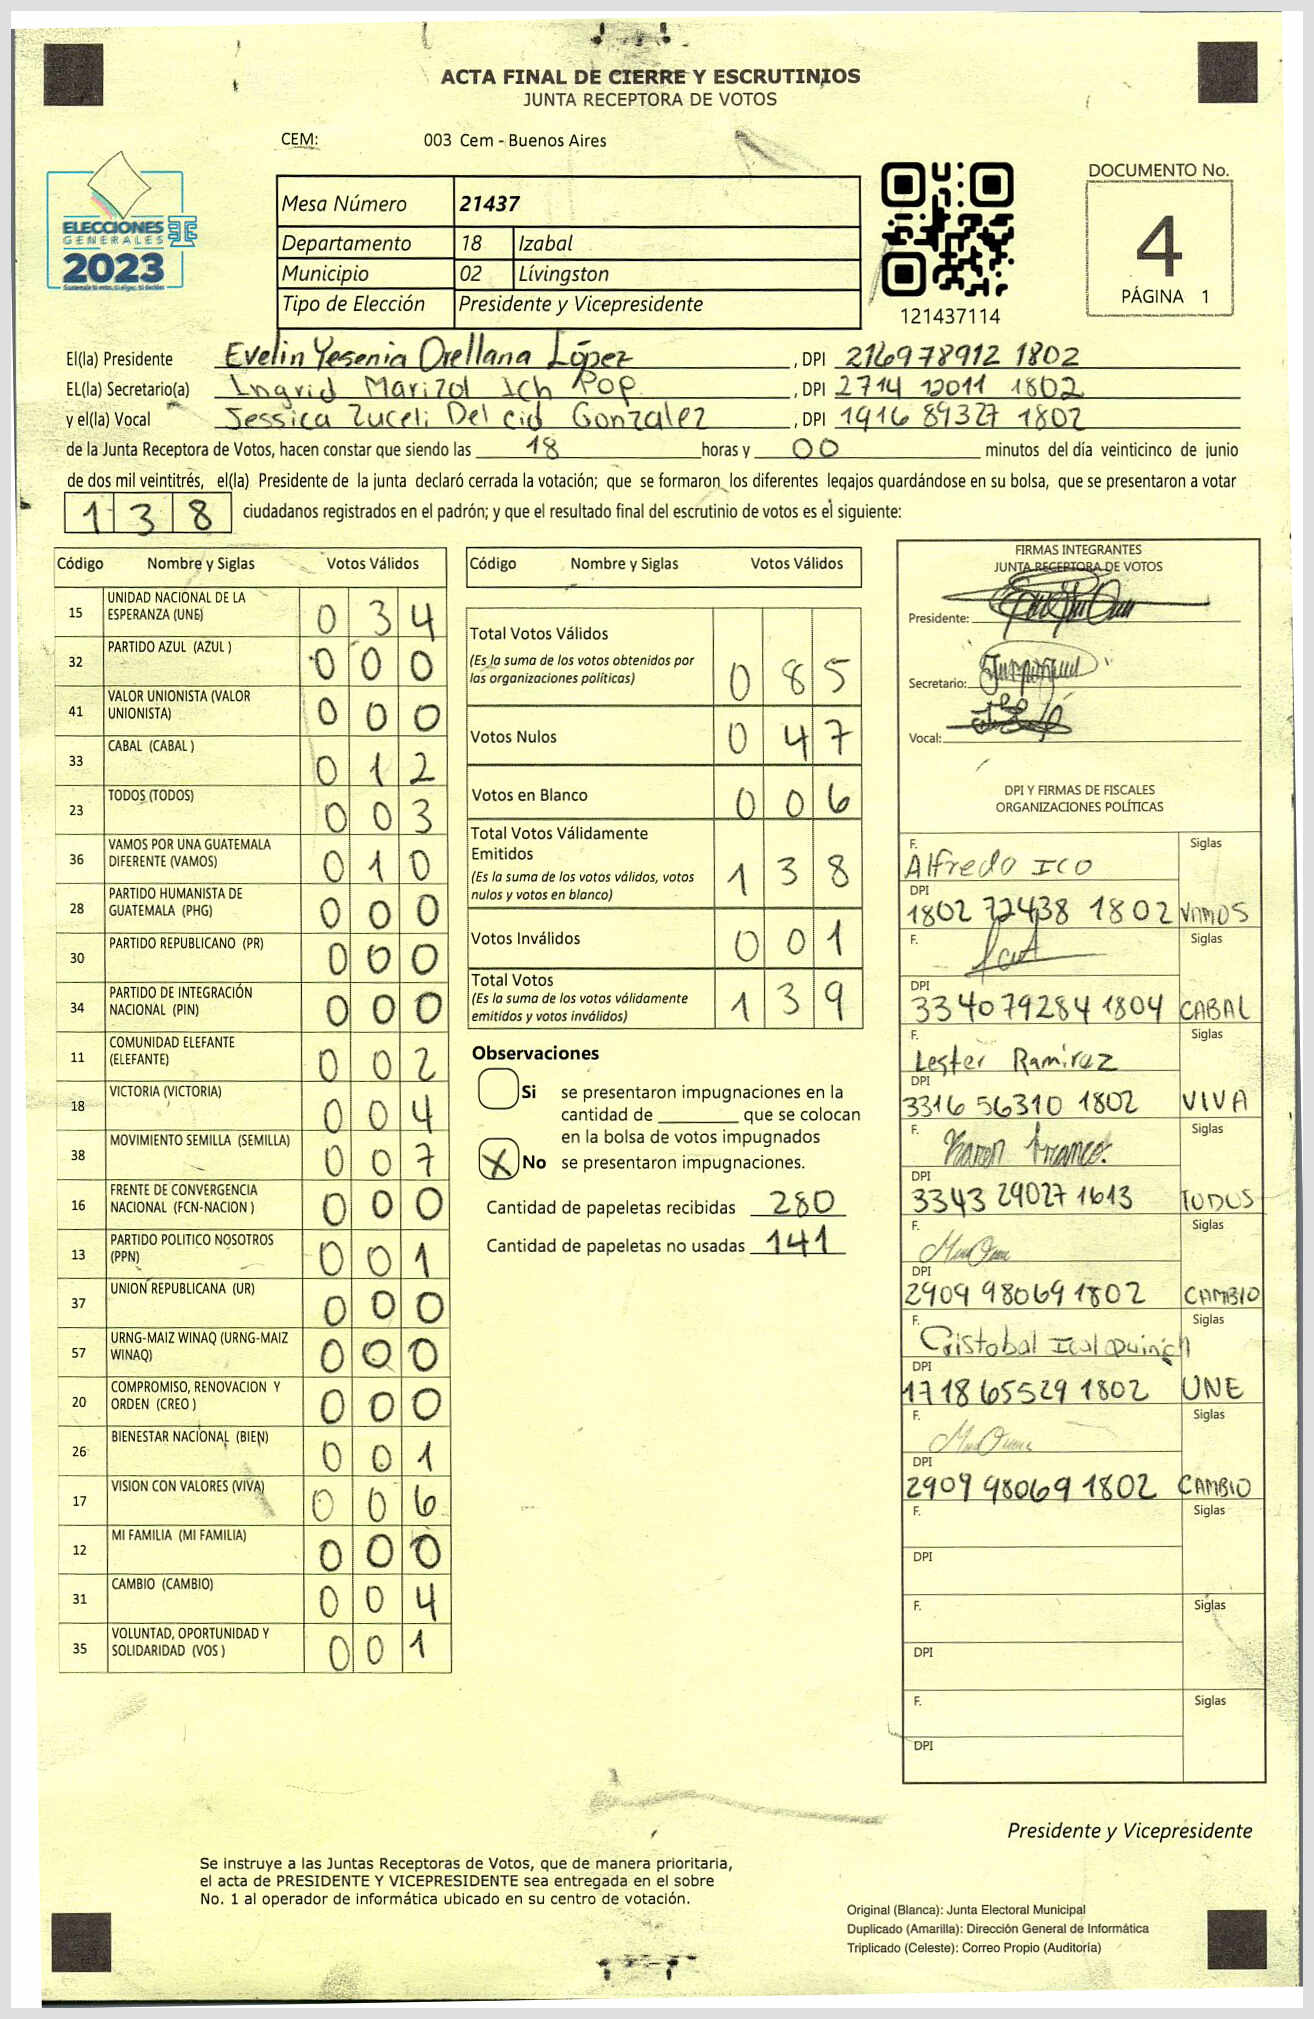 ACTA FINAL DE CIERRE Y ESCRUTINIOS
JUNTA RECEPTORA DE VOTOS
CEM: 003 Cem - Buenos Aires
ELECCIONES
GENERALES
2023
Mesa Número 21437
Departamento 18 Izabal
Municipio 02 Lívingston
Tipo de Elección Presidente y Vicepresidente
121437114
DOCUMENTO No.
4
PÁGINA 1
El(la) Presidente Evelin Yesenia Orellana López, DPI 216978912 1802
EL(la) Secretario(a) Ingrid Marizol Ich Pop, DPI 2714 12011 1802
y el(la) Vocal Jessica Zuceli Del cid Gonzalez, DPI 1916 89327 1802
de la Junta Receptora de Votos, hacen constar que siendo las 18 horas y 00 minutos del día veinticinco de junio
de dos mil veintitrés, el(la) Presidente de la junta declaró cerrada la votación; que se formaron los diferentes legajos guardándose en su bolsa, que se presentaron a votar
138 ciudadanos registrados en el padrón; y que el resultado final del escrutinio de votos es el siguiente:
Código Nombre y Siglas Votos Válidos
15 UNIDAD NACIONAL DE LA ESPERANZA (UNE) 0 3 4
32 PARTIDO AZUL (AZUL ) 0 0 0
41 VALOR UNIONISTA (VALOR UNIONISTA) 0 0 0
33 CABAL (CABAL ) 0 1 2
23 TODOS (TODOS) 0 0 3
36 VAMOS POR UNA GUATEMALA DIFERENTE (VAMOS) 0 1 0
28 PARTIDO HUMANISTA DE GUATEMALA (PHG) 0 0 0
30 PARTIDO REPUBLICANO (PR) 0 0 0
34 PARTIDO DE INTEGRACIÓN NACIONAL (PIN) 0 0 0
11 COMUNIDAD ELEFANTE (ELEFANTE) 0 0 2
18 VICTORIA (VICTORIA) 0 0 4
38 MOVIMIENTO SEMILLA (SEMILLA) 0 0 7
16 FRENTE DE CONVERGENCIA NACIONAL (FCN-NACION ) 0 0 0
13 PARTIDO POLITICO NOSOTROS (PPN) 0 0 1
37 UNION REPUBLICANA (UR) 0 0 0
57 URNG-MAIZ WINAQ (URNG-MAIZ WINAQ) 0 0 0
20 COMPROMISO, RENOVACION Y ORDEN (CREO ) 0 0 0
26 BIENESTAR NACIONAL (BIEN) 0 0 1
17 VISION CON VALORES (VIVA) 0 0 6
12 MI FAMILIA (MI FAMILIA) 0 0 0
31 CAMBIO (CAMBIO) 0 0 4
35 VOLUNTAD, OPORTUNIDAD Y SOLIDARIDAD (VOS ) 0 0 1
Código Nombre y Siglas Votos Válidos
Total Votos Válidos 0 8 5
(Es la suma de los votos obtenidos por
las organizaciones políticas)
Votos Nulos 0 4 7
Votos en Blanco 0 0 6
Total Votos Válidamente
Emitidos 1 3 8
(Es la suma de los votos válidos, votos
nulos y votos en blanco)
Votos Inválidos 0 0 1
Total Votos 1 3 9
(Es la suma de los votos válidamente
emitidos y votos inválidos)
Observaciones
Si se presentaron impugnaciones en la
cantidad de ________ que se colocan
en la bolsa de votos impugnados
X No se presentaron impugnaciones.
Cantidad de papeletas recibidas 280
Cantidad de papeletas no usadas 141
FIRMAS INTEGRANTES
JUNTA RECEPTORA DE VOTOS
Presidente:
Secretario:
Vocal:
DPI Y FIRMAS DE FISCALES
ORGANIZACIONES POLÍTICAS
F. Siglas
Alfredo ICO
DPI
1802 72438 1802 VAMOS
F. Siglas
DPI
334079284 1804 CABAL
F. Siglas
Lester Ramirez
DPI
3316 56310 1802 VIVA
F. Siglas
Karen Franco
DPI
3343 29027 1613 TODOS
F. Siglas
DPI
2909 98069 1802 CAMBIO
F. Siglas
Cristobal
DPI
1718 65529 1802 UNE
F. Siglas
DPI
2909 98069 1802 CAMBIO
F. Siglas
DPI
F. Siglas
DPI
F. Siglas
DPI
Presidente y Vicepresidente
Se instruye a las Juntas Receptoras de Votos, que de manera prioritaria,
el acta de PRESIDENTE Y VICEPRESIDENTE sea entregada en el sobre
No. 1 al operador de informática ubicado en su centro de votación.
Original (Blanca): Junta Electoral Municipal
Duplicado (Amarilla): Dirección General de Informática
Triplicado (Celeste): Correo Propio (Auditoría)